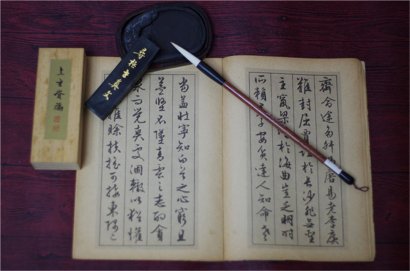 齊命途多舛易老李廣
難封屈賈誼於長沙非無聖
主竄梁鴻於海曲豈乏明時
所賴君子安貧達人知命老
當益壯寧知白首之心窮且
益堅不墜青雲之志酌貪
而覺爽處涸轍以猶懽
雖賒扶搖可接東隅已